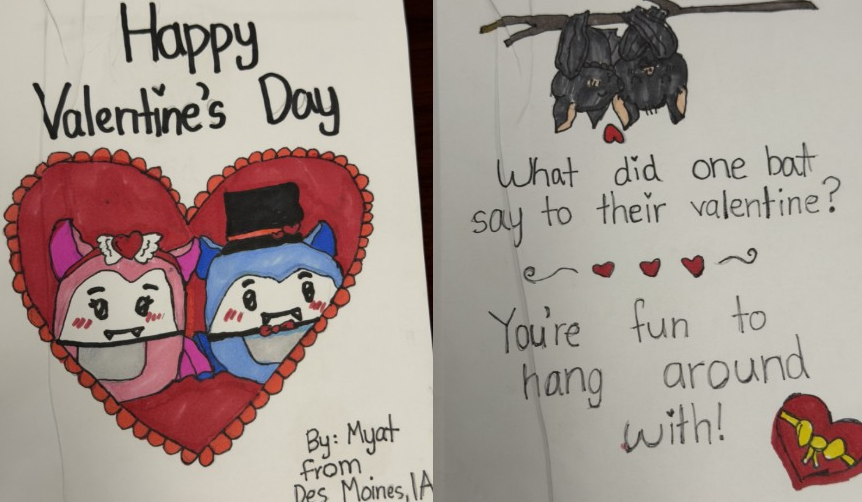 Happy
Valentine's Day
By: Myat
from
Des Moines, IA
What did one bat
say to their valentine?
You're fun to
hang around
with!